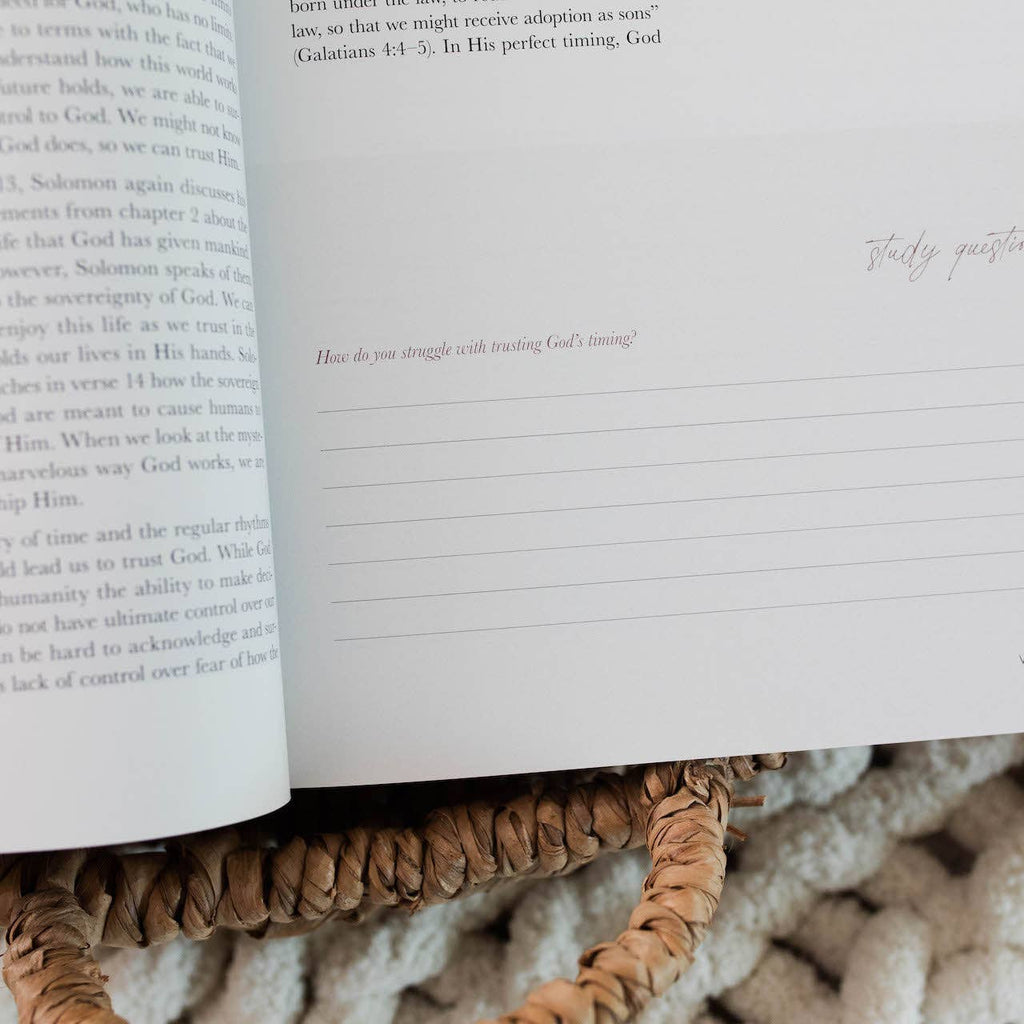 for God, who has no limits,
to terms with the fact that we
derstand how this world works
uture holds, we are able to sur-
trol to God. We might not know
God does, so we can trust Him.
13, Solomon again discusses his
ments from chapter 2 about the
ife that God has given mankind
owever, Solomon speaks of them
the sovereignty of God. We can
enjoy this life as we trust in the
lds our lives in His hands. Solo-
ches in verse 14 how the sovereign
d are meant to cause humans to
Him. When we look at the myste-
marvelous way God works, we are
hip Him.
y of time and the regular rhythms
ld lead us to trust God. While God
humanity the ability to make deci-
o not have ultimate control over our
n be hard to acknowledge and sur-
s lack of control over fear of how the
born under the law, to
law, so that we might receive adoption as sons”
(Galatians 4:4–5). In His perfect timing, God
study questio
How do you struggle with trusting God’s timing?